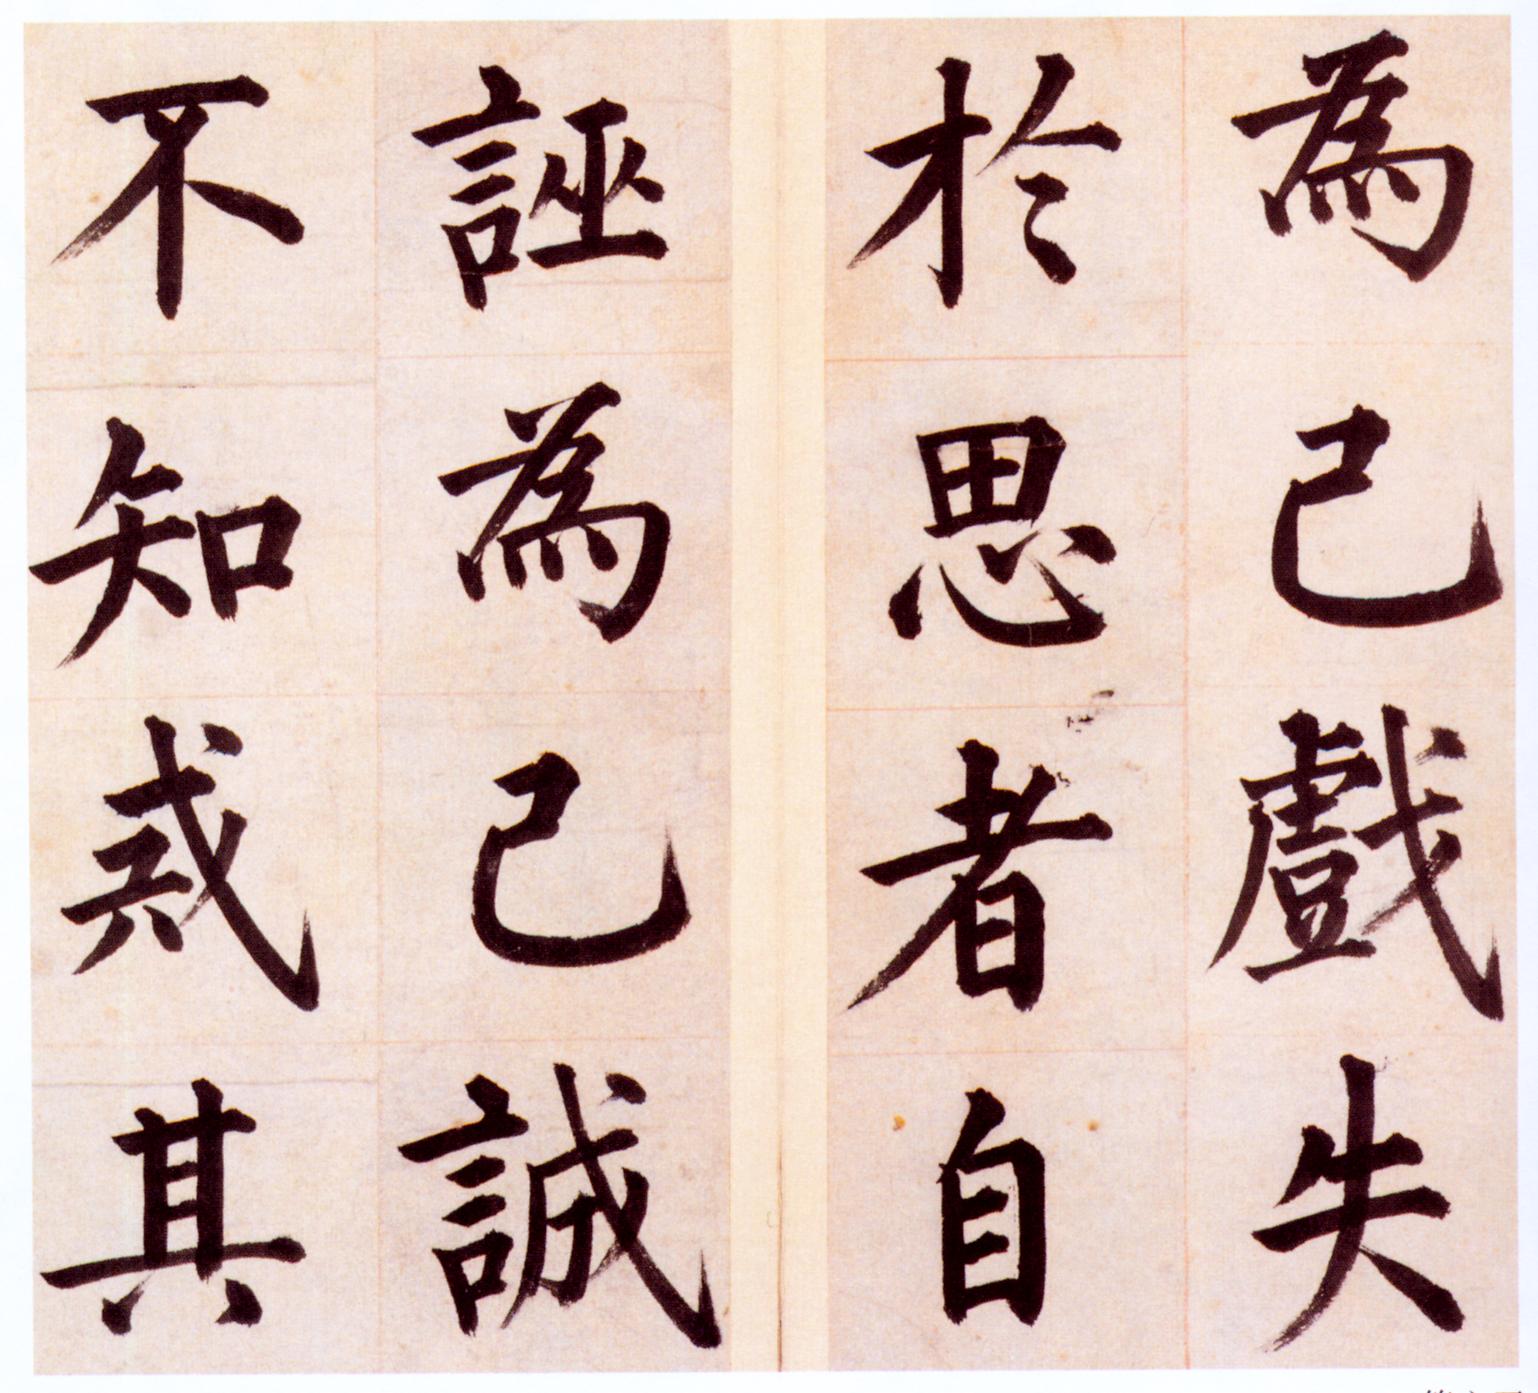 為己戲失
扵思者自
誣為己誠
不知戒其